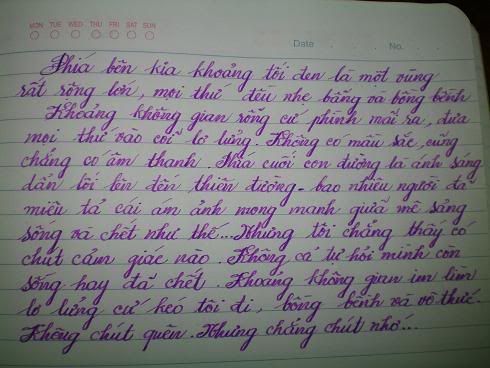 MON TUE WED THU FRI SAT SUN
Date No.
Phía bên kia khoảng tối đen là một vùng
rất rộng lớn, mọi thứ đều nhẹ bẫng và bồng bềnh
Khoảng không gian rỗng cứ phình mãi ra, đưa
mọi thứ vào cõi lơ lửng. Không có màu sắc, cũng
chẳng có âm thanh. Phía cuối con đường là ánh sáng
dẫn lối lên đến thiên đường - bao nhiêu người đã
miêu tả cái ám ảnh mong manh giữa mê sảng
sống và chết như thế... Nhưng tôi chẳng thấy có
chút cảm giác nào. Không cả tự hỏi mình còn
sống hay đã chết. Khoảng không gian im lìm
lơ lửng cứ kéo tôi đi, bồng bềnh và vô thức.
Không chút quên. Nhưng chẳng chút nhớ...